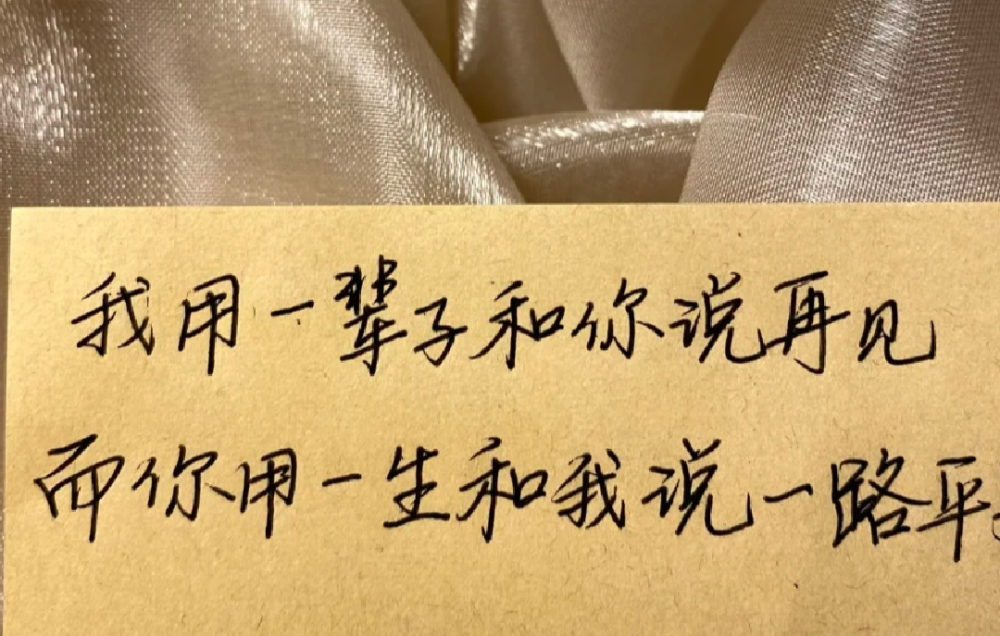 我用一辈子和你说再见
而你用一生和我说一路平